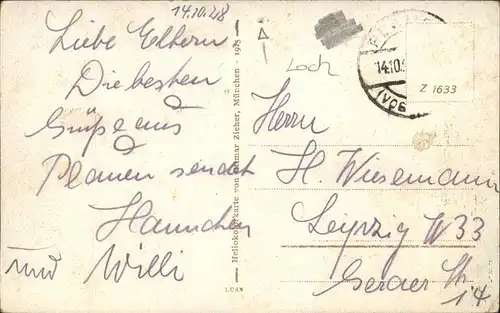 14.10.28
Liebe Eltern
Die besten
Grüße aus
Plauen sendet
Hannchen
und Willi
Loch
14.10.
(VOG
Z 1633
Herrn
H. Wiesemann
Leipzig W 33
Geraer Str
14
Ottmar Zieher, München
LUSN